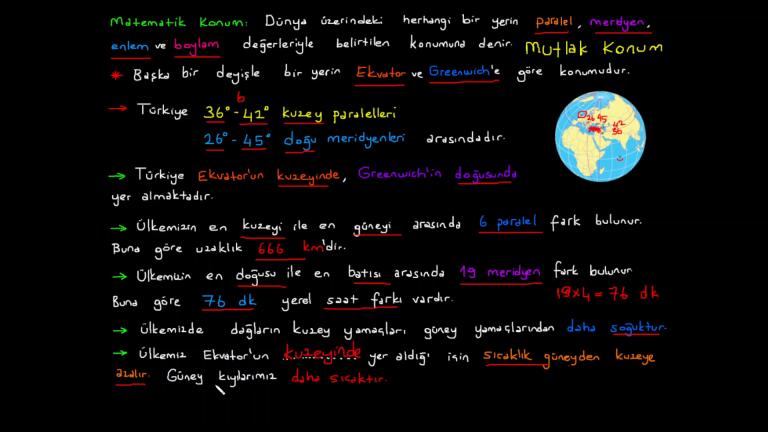 Matematik Konum: Dünya üzerindeki herhangi bir yerin paralel, meridyen,
enlem ve boylam değerleriyle belirtilen konumuna denir. Mutlak Konum
* Başka bir deyişle bir yerin Ekvator ve Greenwich'e göre konumudur.
6
→ Türkiye 36° - 41° kuzey paralelleri
26° - 45° doğu meridyenleri arasındadır.
26 45
42
36
→ Türkiye Ekvator'un kuzeyinde, Greenwich'in doğusunda
yer almaktadır.
→ Ülkemizin en kuzeyi ile en güneyi arasında 6 paralel fark bulunur.
Buna göre uzaklık 666 km'dir.
→ Ülkemizin en doğusu ile en batısı arasında 19 meridyen fark bulunur
Buna göre 76 dk yerel saat farkı vardır. 19x4 = 76 dk
→ Ülkemizde dağların kuzey yamaçları güney yamaçlarından daha soğuktur.
→ Ülkemiz Ekvator'un kuzeyinde yer aldığı için sıcaklık güneyden kuzeye
azalır. Güney kıyılarımız daha sıcaktır.